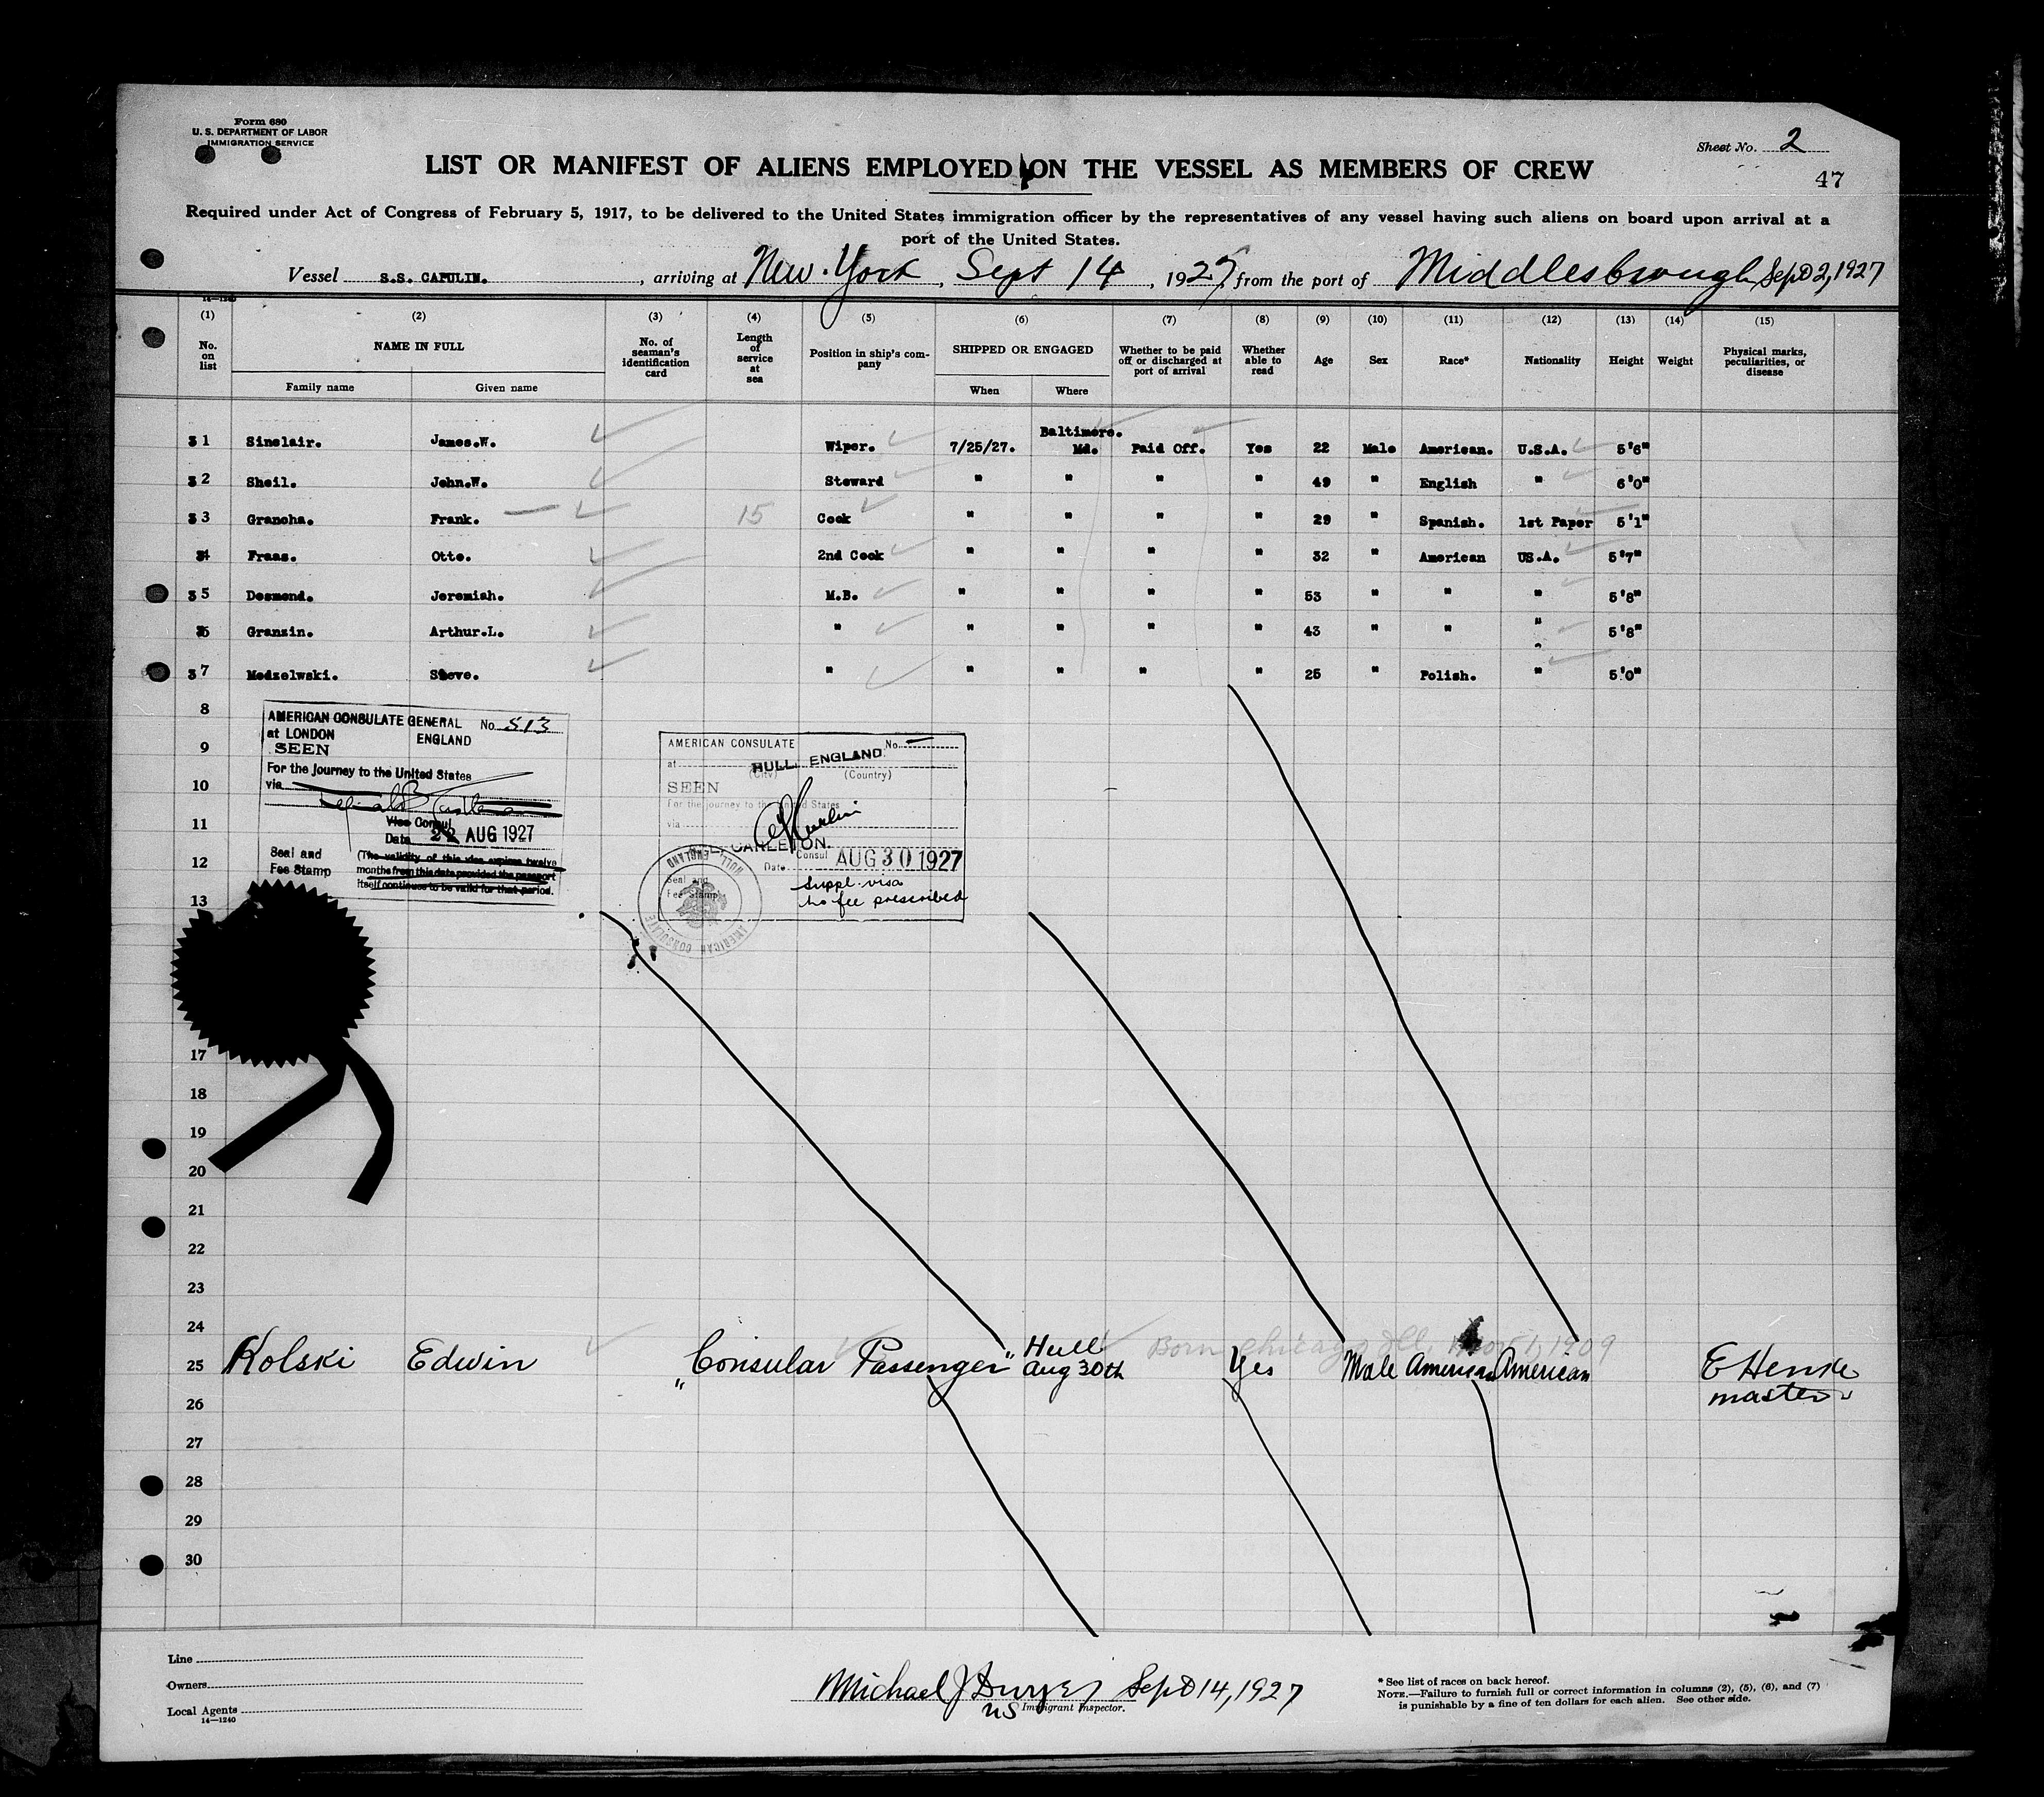 Form 680
U. S. DEPARTMENT OF LABOR
IMMIGRATION SERVICE
Sheet No. 2
47
LIST OR MANIFEST OF ALIENS EMPLOYED ON THE VESSEL AS MEMBERS OF CREW
Required under Act of Congress of February 5, 1917, to be delivered to the United States immigration officer by the representatives of any vessel having such aliens on board upon arrival at a
port of the United States.
Vessel S.S. CAPULIN. , arriving at New York, Sept 14, 1927, from the port of Middlesbrough Sept 2, 1927
14-1240
(1) (2) (3) (4) (5) (6) (7) (8) (9) (10) (11) (12) (13) (14) (15)
No. on list NAME IN FULL Family name Given name No. of seaman's identification card Length of service at sea Position in ship's company SHIPPED OR ENGAGED When Where Whether to be paid off or discharged at port of arrival Whether able to read Age Sex Race* Nationality Height Weight Physical marks, peculiarities, or disease
31 Sinclair. James.W. Wiper. 7/25/27. Baltimore. Md. Paid Off. Yes 22 Male American. U.S.A. 5'6"
32 Sheil. John.W. Steward " " " " 49 " English " 6'0"
33 Grancha. Frank. 15 Cook " " " " 29 " Spanish. 1st Paper 5'1"
34 Fraas. Otto. 2nd Cook " " " " 32 " American US.A. 5'7"
35 Desmond. Jeremiah. M.B. " " " " 53 " " " 5'8"
36 Granzin. Arthur.L. " " " " " 43 " " " 5'8"
37 Modzelwski. Steve. " " " " " 25 " Polish. " 5'0"
8
9
10
11
12
13
AMERICAN CONSULATE GENERAL No. 513
at LONDON ENGLAND
SEEN
For the Journey to the United States
via
Vice Consul
Date 22 AUG 1927
Seal and Fee Stamp
(The validity of this visa expires twelve
months from this date provided the passport
itself continues to be valid for that period.
AMERICAN CONSULATE No.
at HULL, ENGLAND.
(City) (Country)
SEEN
For the journey to the United States
via
CARLETON.
Consul
Date AUG 30 1927
Seal and Fee Stamp
Suppl. visa
no fee prescribed
AMERICAN CONSULATE HULL, ENGLAND
17
18
19
20
21
22
23
24
Born Chicago Ill. 1909
25 Kolski Edwin "Consular Passenger" Hull Aug 30th Yes Male American American E Henke
master
26
27
28
29
30
Line
Owners
Local Agents
14—1240
Michael J Dwyer Sept 14, 1927
US Immigrant Inspector.
* See list of races on back hereof.
NOTE.—Failure to furnish full or correct information in columns (2), (5), (6), and (7)
is punishable by a fine of ten dollars for each alien. See other side.